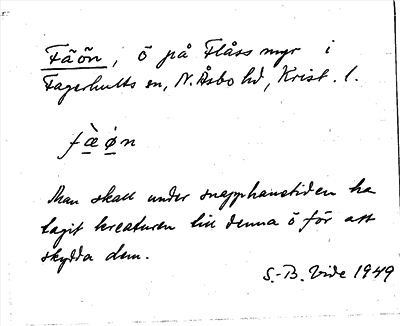 Fäön, ö på Flåss myr i
Fagerhults sn, N. Åsbo hd, Krist. l.
fæ̀øn
Man skall under snapphanetiden ha
tagit kreaturen till denna ö för att
skydda dem.
S.-B. Vide 1949